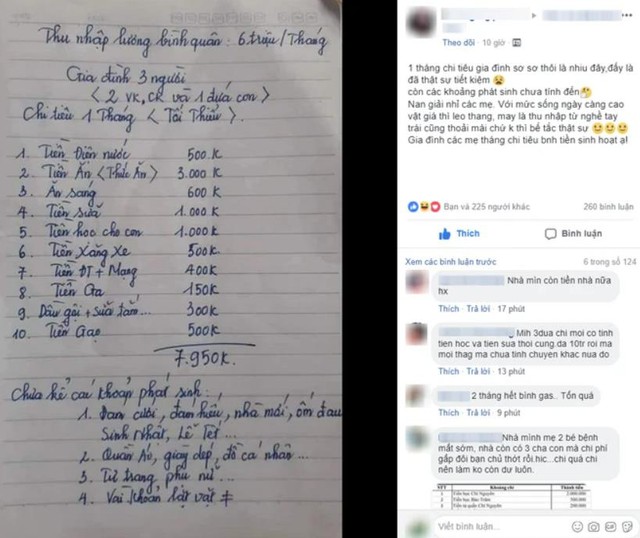 Thu nhập lương bình quân: 6 triệu/Tháng
Gia đình 3 người
< 2 VK, CK và 1 đứa con >
Chi tiêu 1 Tháng < Tối Thiểu >.
1. Tiền Điện nước 500.K
2. Tiền Ăn <Thức Ăn> 3.000 K
3. Ăn sáng 600 K
4. Tiền sữa 1.000 K
5. Tiền học cho con 1.000 K
6. Tiền Xăng Xe 500K
7. Tiền ĐT + Mạng 400K
8. Tiền Ga 150K
9. Dầu gội + sữa tắm... 300K
10. Tiền Gạo 500K
7.950K.
Chưa kể các khoản phát sinh:
1. Đám cưới, đám hiếu, nhà mới, ốm đau
Sinh Nhật, Lễ Tết ...
2. Quần áo, giày dép, đồ cá nhân ...
3. Tư trang phụ nữ ...
4. Vài khoản lặt vặt #
Theo dõi · 10 giờ ·
1 tháng chi tiêu gia đình sơ sơ thôi là nhiu đây,đấy là
đã thật sự tiết kiệm 😫
còn các khoảng phát sinh chưa tính đến🤔
Nan giải nhỉ các mẹ. Với mức sống ngày càng cao
vật giá thì leo thang, may là thu nhập từ nghề tay
trái cũng thoải mái chứ k thì bế tắc thật sự
Gia đình các mẹ tháng chi tiêu bnh tiền sinh hoạt ạ!
Bạn và 225 người khác 260 bình luận
Thích Bình luận
Xem các bình luận trước 6 trong số 124
Nhà mìn còn tiền nhà nữa
hx
Thích · Trả lời · 17 phút
Mih 3dua chi moi co tinh
tien học va tien sua thoi cung.da 10tr roi ma
moi thag ma chua tinh chuyen khac nua do
Thích · Trả lời · 13 phút
2 tháng hết bình gas.. Tốn quá
Thích · Trả lời · 9 phút
Nhà mình mẹ 2 bé bệnh
mất sớm, nhà còn có 3 cha con mà chi phí
gấp đôi bạn chủ thớt rồi hic...chi quá chi
nên làm ko còn dư luôn.
STT Khoản chi Thành tiền
1 Tiền học Chí Nguyên 2.000.000
2 500.000
3 200.000
Viết bình luận...